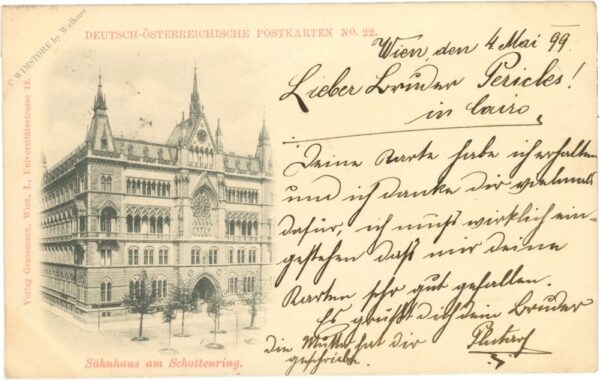 DEUTSCH-ÖSTERREICHISCHE POSTKARTEN No. 22.
© WIMSTORE by Walkner
Verlag Grassmann, Wien, I., Universitätsstrasse 12.
Wien, den 4 Mai 99
Lieber Bruder Pericles!
in Cairo
Deine Karte habe ich erhalten
und ich danke dir vielmals
dafür, ich muß wirklich ein-
gestehen daß mir deine
Karten sehr gut gefallen.
Es grüßt dich dein Bruder
die Mutter hat dir Plutarch
geschrieben.
Sühnhaus am Schottenring.